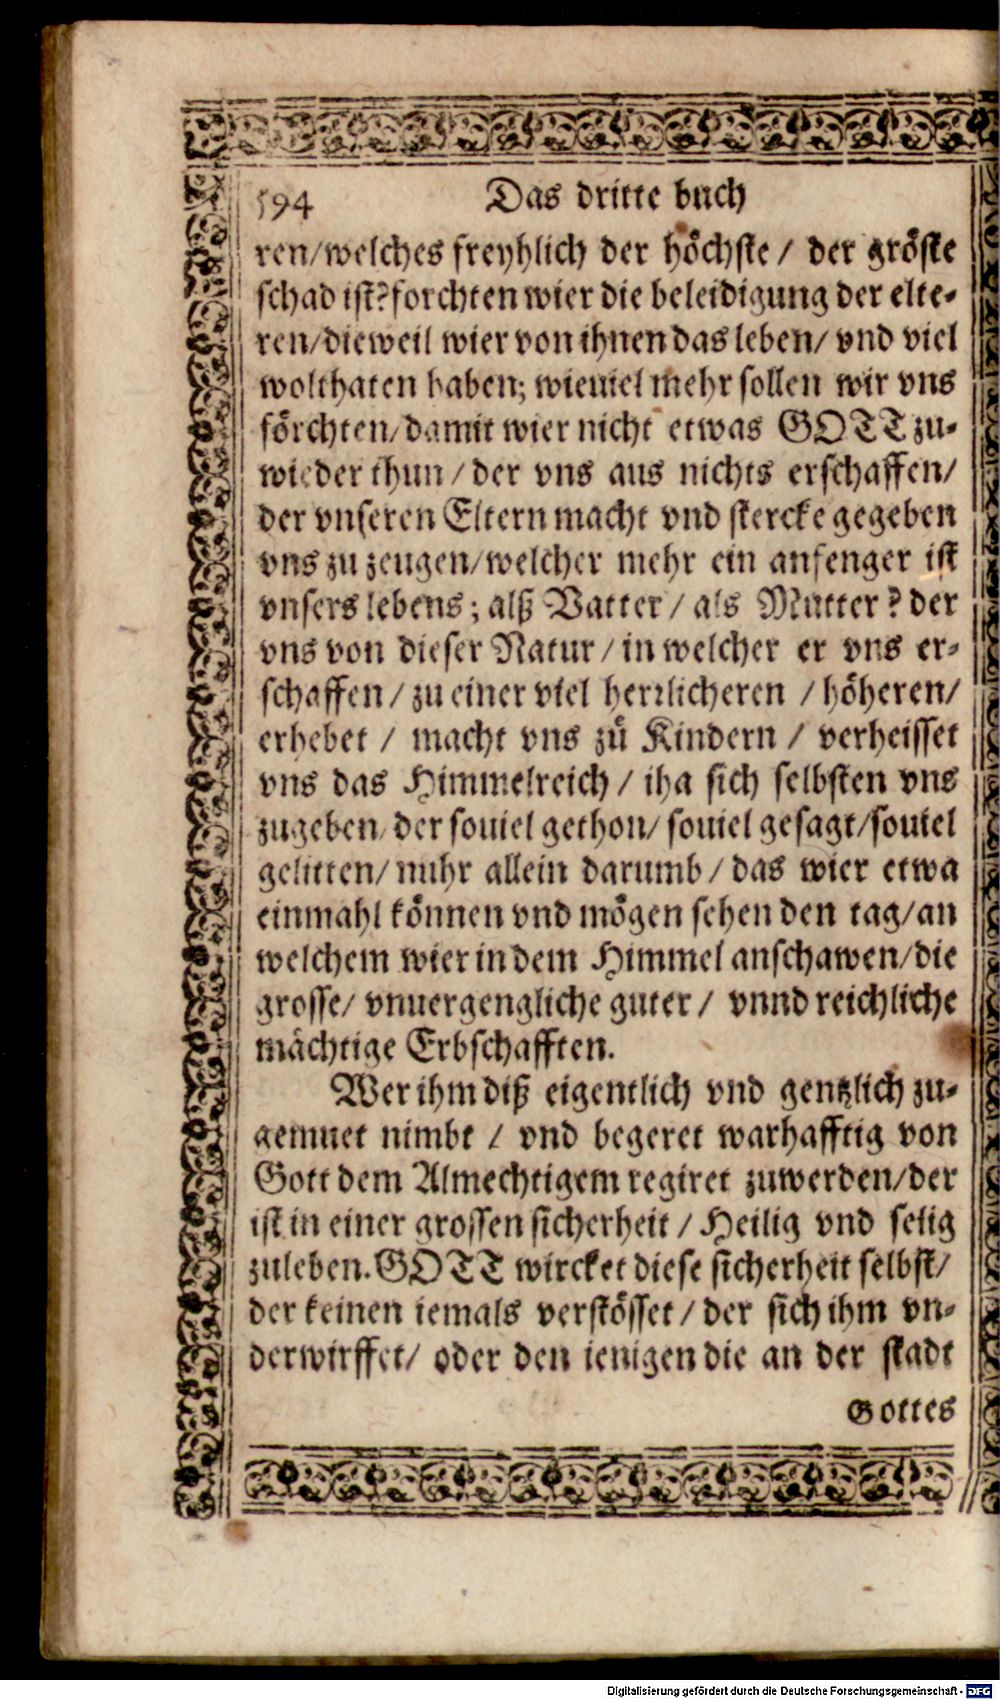 594 Das dritte buch
ren/welches freyhlich der höchste / der gröste
schad ist? forchten wier die beleidigung der elte-
ren/dieweil wier von ihnen das leben/ vnd viel
wolthaten haben; wieuiel mehr sollen wir vns
förchten/damit wier nicht etwas GOTT zu-
wieder thun / der vns aus nichts erschaffen/
der vnseren Eltern macht vnd stercke gegeben
vns zu zeugen/welcher mehr ein anfenger ist
vnsers lebens; alß Vatter / als Mutter? der
vns von dieser Natur / in welcher er vns er-
schaffen / zu einer viel herrlicheren / höheren/
erhebet / macht vns zů Kindern / verheisset
vns das Himmelreich / iha sich selbsten vns
zugeben/ der souiel gethon/ souiel gesagt/souiel
gelitten/ nuhr allein darumb / das wier etwa
einmahl können vnd mögen sehen den tag/an
welchem wier in dem Himmel anschawen/die
grosse/ vnuergengliche guter / vnnd reichliche
mächtige Erbschafften.
Wer ihm diß eigentlich vnd gentzlich zu-
gemuet nimbt / vnd begeret warhafftig von
Gott dem Almechtigem regiret zuwerden/der
ist in einer grossen sicherheit / Heilig vnd selig
zuleben. GOTT wircket diese sicherheit selbst/
der keinen iemals verstösset / der sich ihm vn-
derwirffet/ oder den ienigen die an der stadt
Gottes
Digitalisierung gefördert durch die Deutsche Forschungsgemeinschaft - DFG